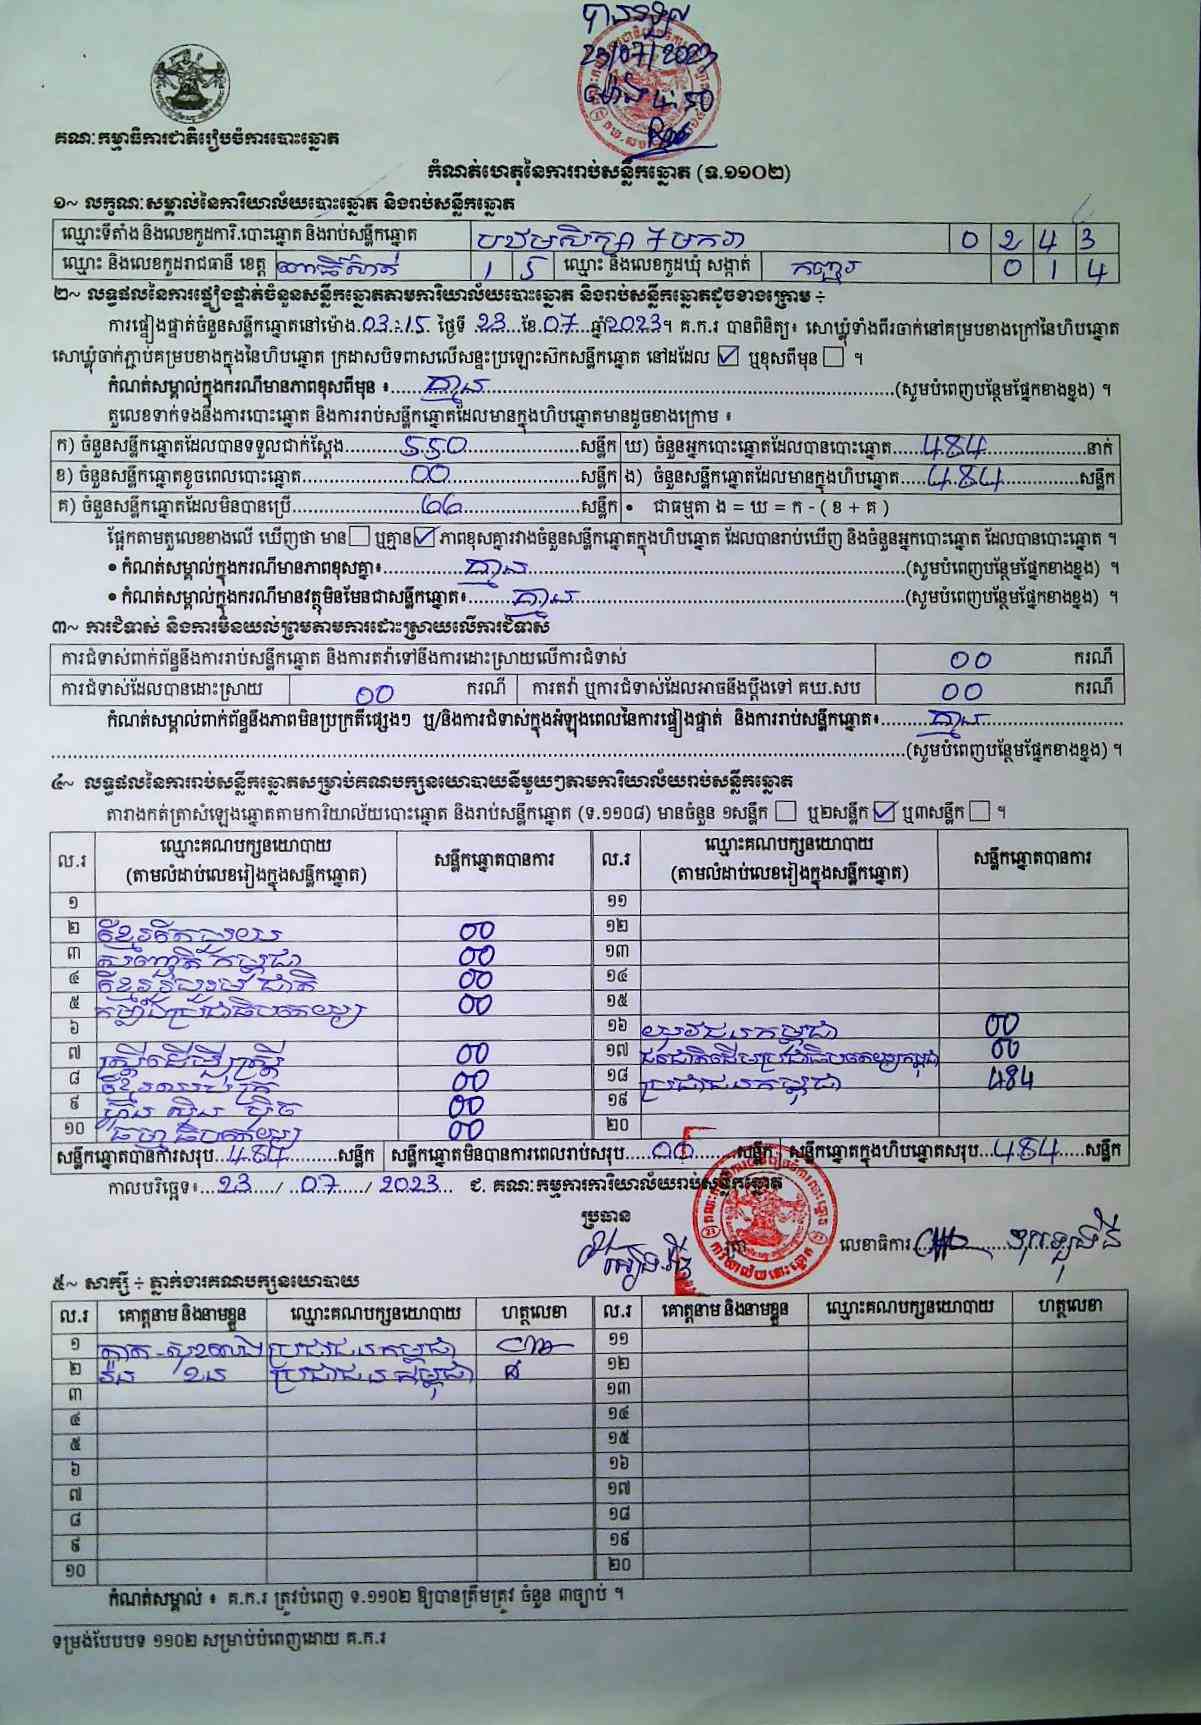 បានទទួល
23/07/2023
ម៉ោង 4:50
គណៈកម្មាធិការជាតិរៀបចំការបោះឆ្នោត
កំណត់ហេតុនៃការរាប់សន្លឹកឆ្នោត (ទ.១១០២)
១~ លក្ខណៈសម្គាល់នៃការិយាល័យបោះឆ្នោត និងរាប់សន្លឹកឆ្នោត
ឈ្មោះទីតាំង និងលេខកូដការិ.បោះឆ្នោត និងរាប់សន្លឹកឆ្នោត បឋមសិក្សា 7មករា 0 2 4 3
ឈ្មោះ និងលេខកូដរាជធានី ខេត្ត ពោធិ៍សាត់ 1 5 ឈ្មោះ និងលេខកូដឃុំ សង្កាត់ កញ្ជរ 0 1 4
២~ លទ្ធផលនៃការផ្ទៀងផ្ទាត់ចំនួនសន្លឹកឆ្នោតតាមការិយាល័យបោះឆ្នោត និងរាប់សន្លឹកឆ្នោតដូចខាងក្រោម ÷
ការផ្ទៀងផ្ទាត់ចំនួនសន្លឹកឆ្នោតនៅម៉ោង.03:15. ថ្ងៃទី .23...ខែ.07...ឆ្នាំ2023។ គ.ក.រ បានពិនិត្យ៖ សោឃ្លុំទាំងពីរចាក់នៅគម្របខាងក្រៅនៃហិបឆ្នោត
សោឃ្លុំចាក់ភ្ជាប់គម្របខាងក្នុងនៃហិបឆ្នោត ក្រដាសបិទពាសលើសន្ទះប្រឡោះស៊កសន្លឹកឆ្នោត នៅដដែល ☑ ឬខុសពីមុន ☐ ។
កំណត់សម្គាល់ក្នុងករណីមានភាពខុសពីមុន ៖......គ្មាន......(សូមបំពេញបន្ថែមផ្នែកខាងខ្នង) ។
តួលេខទាក់ទងនឹងការបោះឆ្នោត និងការរាប់សន្លឹកឆ្នោតដែលមានក្នុងហិបឆ្នោតមានដូចខាងក្រោម ៖
ក) ចំនួនសន្លឹកឆ្នោតដែលបានទទួលជាក់ស្តែង......550......សន្លឹក ឃ) ចំនួនអ្នកបោះឆ្នោតដែលបានបោះឆ្នោត.....484......នាក់
ខ) ចំនួនសន្លឹកឆ្នោតខូចពេលបោះឆ្នោត......00......សន្លឹក ង) ចំនួនសន្លឹកឆ្នោតដែលមានក្នុងហិបឆ្នោត.....484......សន្លឹក
គ) ចំនួនសន្លឹកឆ្នោតដែលមិនបានប្រើ......66......សន្លឹក • ជាធម្មតា ង = ឃ = ក - ( ខ + គ )
ផ្អែកតាមតួលេខខាងលើ ឃើញថា មាន ☐ ឬគ្មាន ☑ ភាពខុសគ្នារវាងចំនួនសន្លឹកឆ្នោតក្នុងហិបឆ្នោត ដែលបានរាប់ឃើញ និងចំនួនអ្នកបោះឆ្នោត ដែលបានបោះឆ្នោត ។
• កំណត់សម្គាល់ក្នុងករណីមានភាពខុសគ្នា៖......គ្មាន......(សូមបំពេញបន្ថែមផ្នែកខាងខ្នង) ។
• កំណត់សម្គាល់ក្នុងករណីមានវត្ថុមិនមែនជាសន្លឹកឆ្នោត៖......គ្មាន......(សូមបំពេញបន្ថែមផ្នែកខាងខ្នង) ។
៣~ ការជំទាស់ និងការមិនយល់ព្រមតាមការដោះស្រាយលើការជំទាស់
ការជំទាស់ពាក់ព័ន្ធនឹងការរាប់សន្លឹកឆ្នោត និងការតវ៉ាទៅនឹងការដោះស្រាយលើការជំទាស់ 00 ករណី
ការជំទាស់ដែលបានដោះស្រាយ 00 ករណី ការតវ៉ា ឬការជំទាស់ដែលអាចនឹងប្តឹងទៅ គឃ.សប 00 ករណី
កំណត់សម្គាល់ពាក់ព័ន្ធនឹងភាពមិនប្រក្រតីផ្សេងៗ ឬ/និងការជំទាស់ក្នុងអំឡុងពេលនៃការផ្ទៀងផ្ទាត់ និងការរាប់សន្លឹកឆ្នោត៖......គ្មាន......
......(សូមបំពេញបន្ថែមផ្នែកខាងខ្នង) ។
៤~ លទ្ធផលនៃការរាប់សន្លឹកឆ្នោតសម្រាប់គណបក្សនយោបាយនីមួយៗតាមការិយាល័យរាប់សន្លឹកឆ្នោត
តារាងកត់ត្រាសំឡេងឆ្នោតតាមការិយាល័យបោះឆ្នោត និងរាប់សន្លឹកឆ្នោត (ទ.១១០៨) មានចំនួន ១សន្លឹក ☐ ឬ២សន្លឹក ☑ ឬ៣សន្លឹក ☐ ។
ល.រ ឈ្មោះគណបក្សនយោបាយ (តាមលំដាប់លេខរៀងក្នុងសន្លឹកឆ្នោត) សន្លឹកឆ្នោតបានការ ល.រ ឈ្មោះគណបក្សនយោបាយ (តាមលំដាប់លេខរៀងក្នុងសន្លឹកឆ្នោត) សន្លឹកឆ្នោតបានការ
១ ១១
២ 00 ១២
៣ សញ្ជាតិកម្ពុជា 00 ១៣
៤ ខ្មែររួបរួមជាតិ 00 ១៤
៥ កម្លាំងប្រជាធិបតេយ្យ 00 ១៥
៦ ១៦ យុវជនកម្ពុជា 00
៧ ស្ត្រីដើម្បីស្ត្រី 00 ១៧ ជនជាតិដើមប្រជាធិបតេយ្យកម្ពុជា 00
៨ ខ្មែរឈប់ក្រ 00 ១៨ ប្រជាជនកម្ពុជា 484
៩ ហ្វ៊ុនស៊ិនប៉ិច 00 ១៩
១០ ធម្មាធិបតេយ្យ 00 ២០
សន្លឹកឆ្នោតបានការសរុប...484......សន្លឹក សន្លឹកឆ្នោតមិនបានការពេលរាប់សរុប.....00......សន្លឹក សន្លឹកឆ្នោតក្នុងហិបឆ្នោតសរុប...484.....សន្លឹក
កាលបរិច្ឆេទ៖...23..../ ..07...../ 2023... ជ. គណៈកម្មការការិយាល័យរាប់សន្លឹកឆ្នោត
ប្រធាន
ត្រា លេខាធិការ
៥~ សាក្សី ÷ ភ្នាក់ងារគណបក្សនយោបាយ
ល.រ គោត្តនាម និងនាមខ្លួន ឈ្មោះគណបក្សនយោបាយ ហត្ថលេខា ល.រ គោត្តនាម និងនាមខ្លួន ឈ្មោះគណបក្សនយោបាយ ហត្ថលេខា
១ ប្រជាជនកម្ពុជា ១១
២ ប្រជាជនកម្ពុជា ១២
៣ ១៣
៤ ១៤
៥ ១៥
៦ ១៦
៧ ១៧
៨ ១៨
៩ ១៩
១០ ២០
កំណត់សម្គាល់ ៖ គ.ក.រ ត្រូវបំពេញ ទ.១១០២ ឱ្យបានត្រឹមត្រូវ ចំនួន ៣ច្បាប់ ។
ទម្រង់បែបបទ ១១០២ សម្រាប់បំពេញដោយ គ.ក.រ